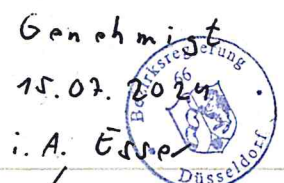 Genehmigt
15.07.2024
i. A. Esser
Bezirksregierung
66
Düsseldorf